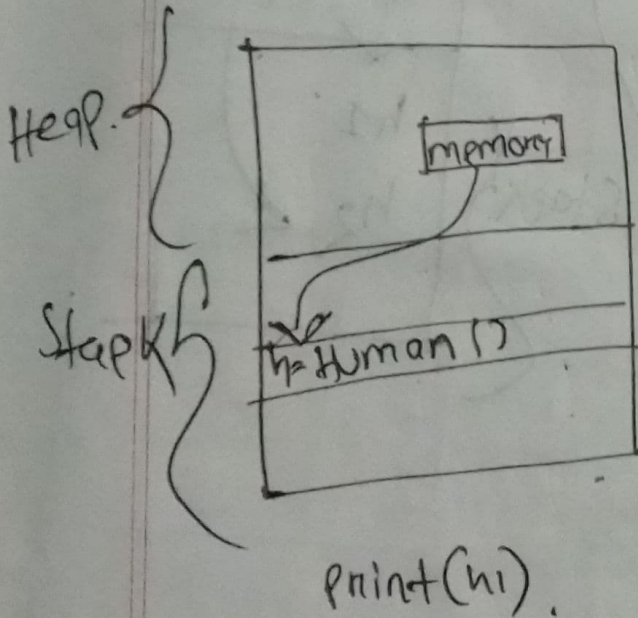 Heap.
memory
Stapk
h=Human()
print(h1).